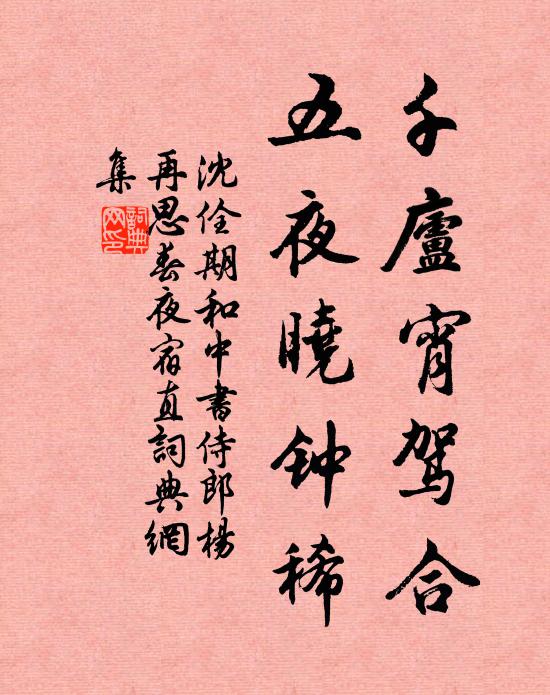 千廬宵駕合
五夜曉钟稀
沈佺期和中書侍郎楊
再思春夜宿直詞典網
集
詞典
网印